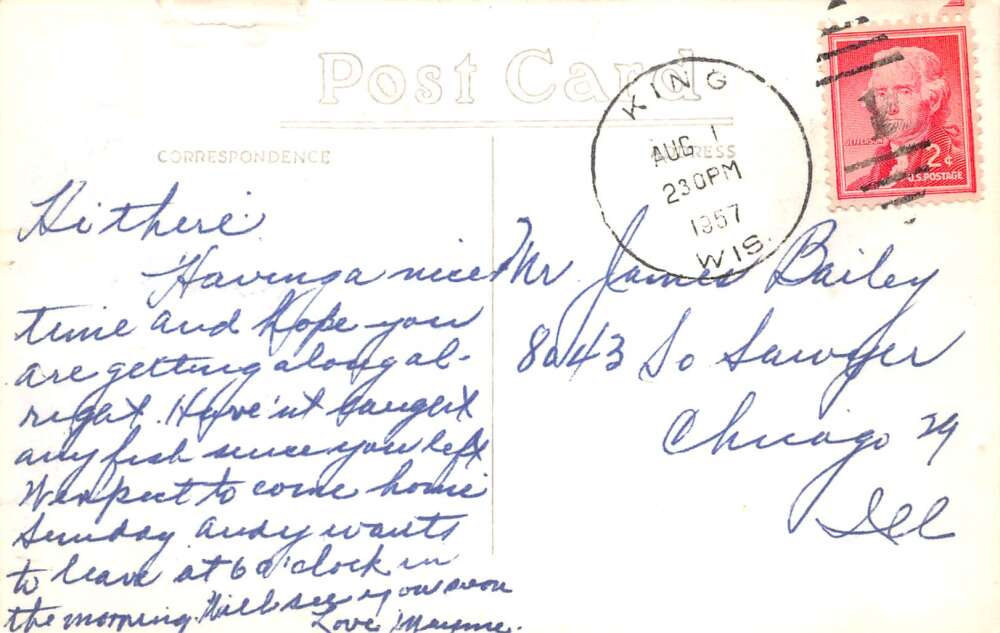 Post Card
CORRESPONDENCE
KING
AUG 1
230PM
1957
WIS.
JEFFERSON
2¢
U.S. POSTAGE
Hi there
Having a nice
time and hope you
are getting along al-
right. Have'nt caught
any fish since you left
We expect to come home
Sunday Andy wants
to leave at 6 o'clock in
the morning. Will see you soon
Love Mayme.
Mr James Bailey
8043 So Sawyer
Chicago 29
Ill